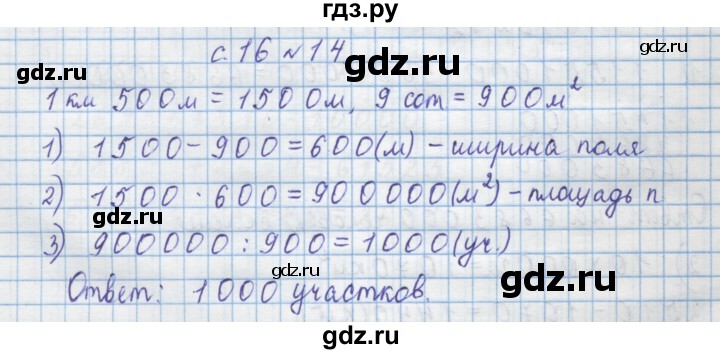 гдз.ру
с.16 №14
gdz.ru gdz.ru
1 км 500м = 1500м, 9 сот = 900м²
1) 1500-900=600(м) - ширина поля
gdz.ru
2) 1500 · 600=900000(м²) - площадь п
gdz.ru
3) 900000:900=1000(уч.)
Ответ: 1000 участков.
gdz.ru
gdz.ru